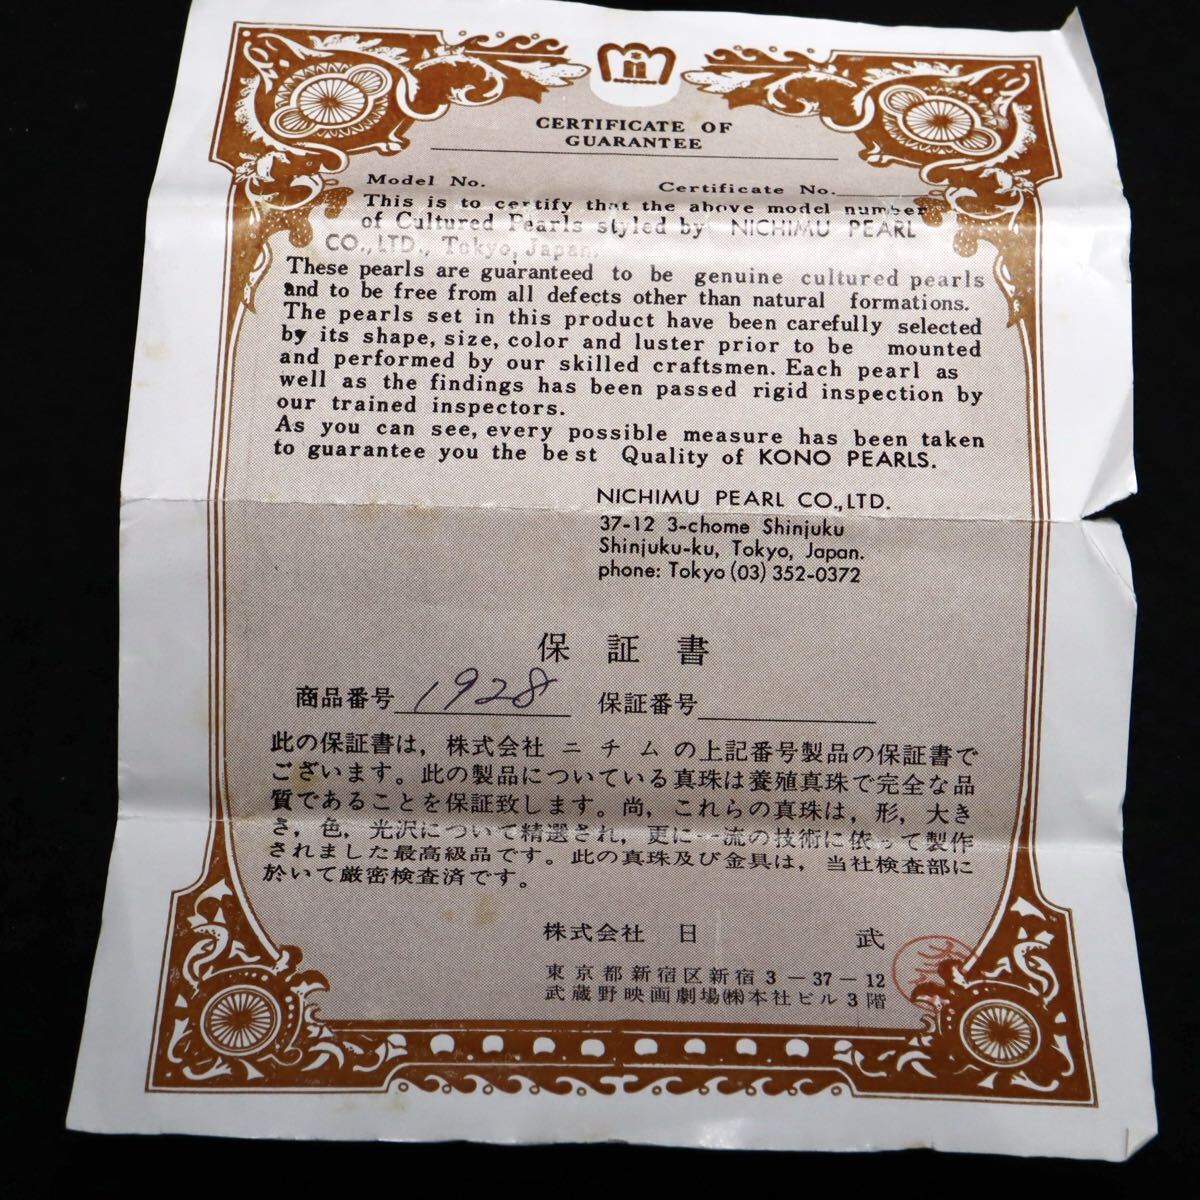 CERTIFICATE OF
GUARANTEE
Model No. Certificate No.
This is to certify that the above model number
of Cultured Pearls styled by NICHIMU PEARL
CO., LTD., Tokyo, Japan.
These pearls are guaranteed to be genuine cultured pearls
and to be free from all defects other than natural formations.
The pearls set in this product have been carefully selected
by its shape, size, color and luster prior to be mounted
and performed by our skilled craftsmen. Each pearl as
well as the findings has been passed rigid inspection by
our trained inspectors.
As you can see, every possible measure has been taken
to guarantee you the best Quality of KONO PEARLS.
NICHIMU PEARL CO., LTD.
37-12 3-chome Shinjuku
Shinjuku-ku, Tokyo, Japan.
phone: Tokyo (03) 352-0372
保証書
商品番号 1928 保証番号
此の保証書は，株式会社 ニチム の上記番号製品の保証書で
ございます。此の製品についている真珠は養殖真珠で完全な品
質であることを保証致します。尚，これらの真珠は，形，大き
さ，色，光沢について精選され，更に一流の技術に依って製作
されました最高級品です。此の真珠及び金具は，当社検査部に
於いて厳密検査済です。
株式会社 日 武
東京都新宿区新宿3－37－12
武蔵野映画劇場㈱本社ビル3階